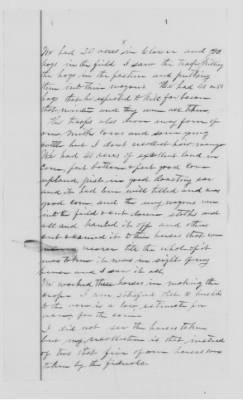 We had 20 acres in Clover and 40
hogs in the field I saw the troops killing
the hogs in the pasture and putting
them into their wagons. We had 40 odd
hogs that he expected to kill for bacon
that winter and they were all taken.
The troops also drove away four of
our milk cows and some young
cattle but I dont recollect how many
We had 40 acres of excellent land in
Corn, part bottom & part good corn
upland, just in good roasting ear
and it had been well tilled and was
good corn, and the army wagons came
into the field & cut down stalks and
all and hauled it off and others
cut & carried it to their horses
manner till the whole of it
was taken it was in sight of my
house and I saw it all
We worked three horses in making the
crops I am satisfied that 10 bushels
to the acre is a low estimate
for the corn
I did not see the horses taken
but my recollection is that instead
of two that five of our horses were
taken by the federals